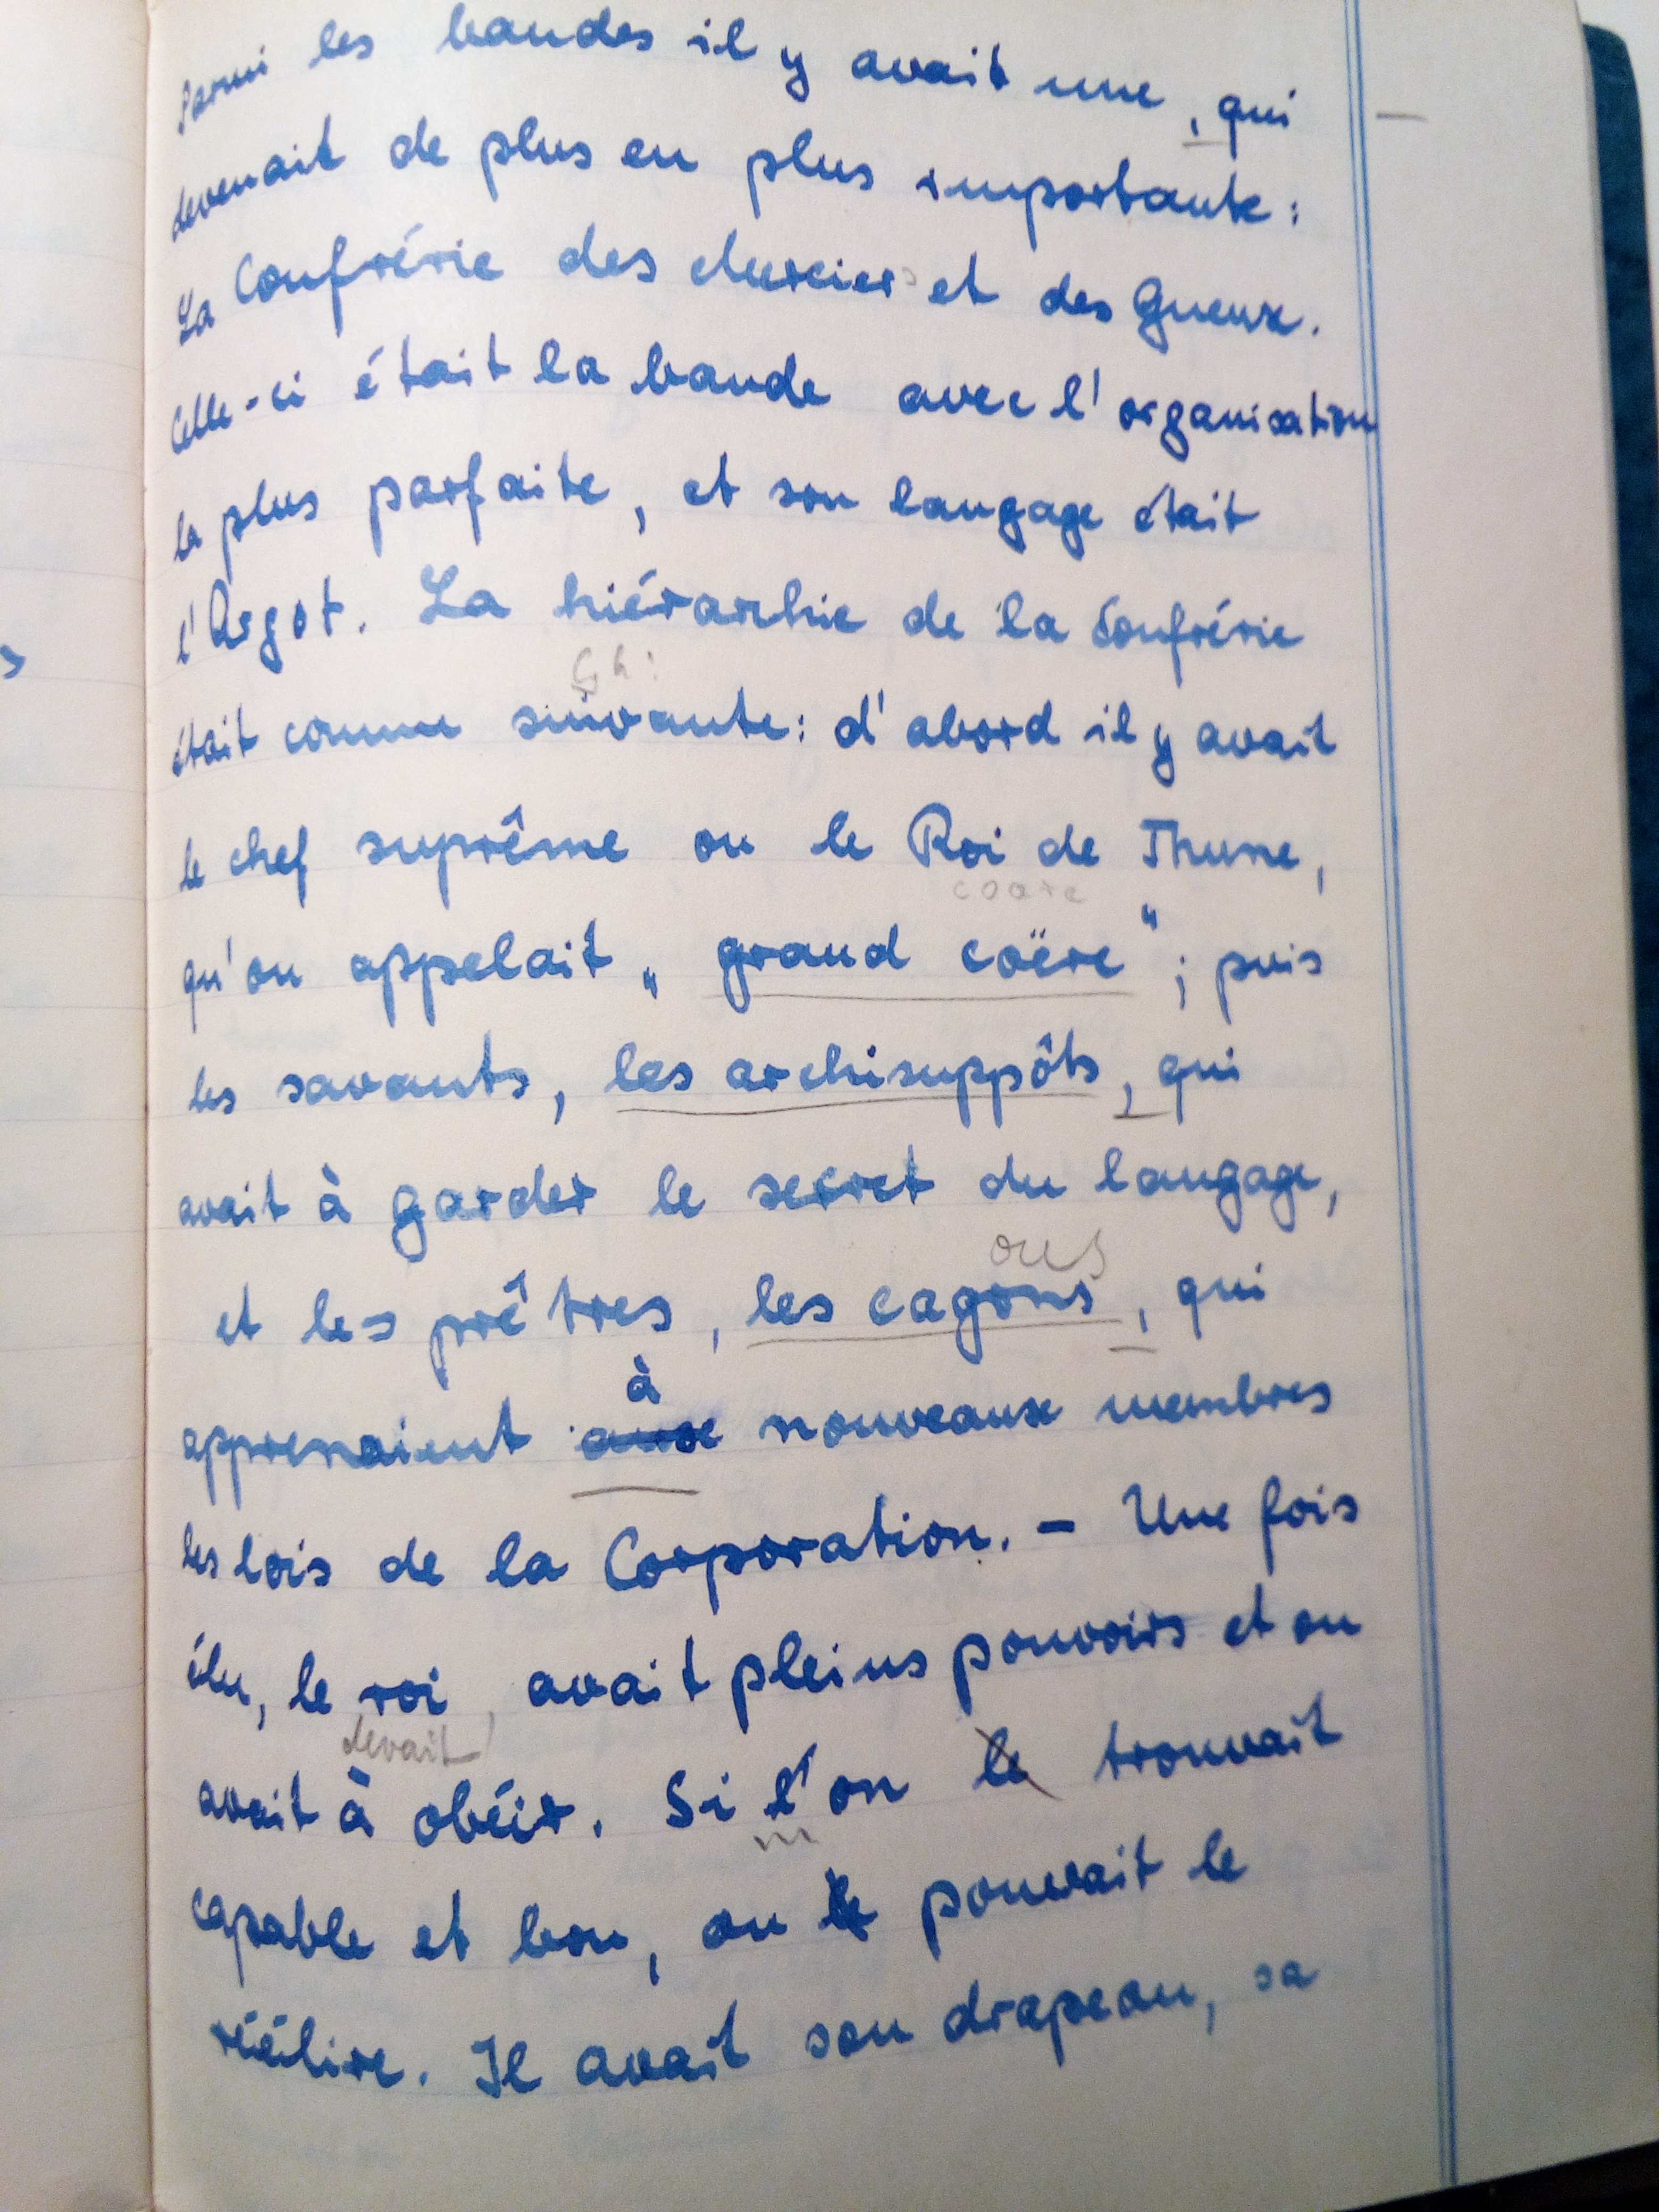 Parmi les bandes il y avait une, qui
devenait de plus en plus importante:
La Confrérie des Merciers et des Gueux.
Celle-ci était la bande avec l'organisation
la plus parfaite, et son langage était
l'Argot. La hiérarchie de la Confrérie
était comme suivante: d'abord il y avait
le chef suprême ou le Roi de Thune,
coare
qu'on appelait „grand coëre"; puis
les savants, les archisuppôts, qui
avait à garder le secret du langage,
ous
et les prêtres, les cagons, qui
à
apprenaient aux nouveaux membres
les lois de la Corporation. - Une fois
élu, le roi, avait pleins pouvoirs et on
devait
avait à obéir. Si l'on le trouvait
capable et bon, on le pouvait le
réélire. Il avait son drapeau, sa